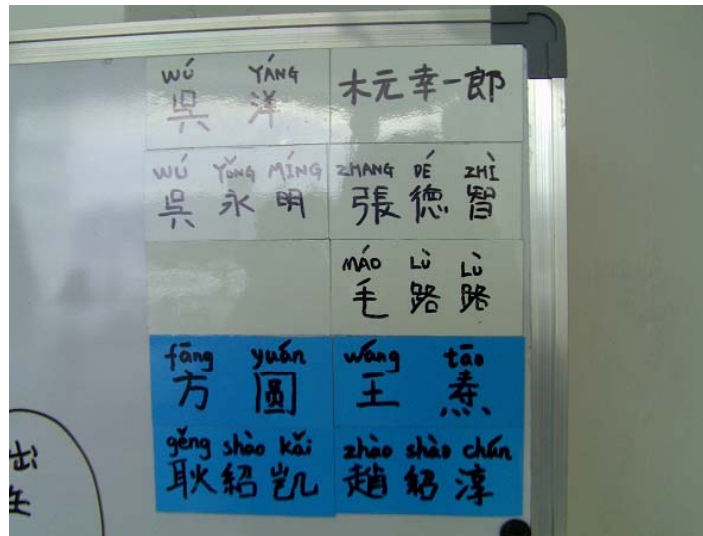 WÚ YÁNG
吳 洋
木元幸一郎
WÚ YǑNG MÍNG
吳 永 明
ZHANG DÉ ZHÌ
張 德 智
MÁO LÙ LÙ
毛 路 路
fāng yuán
方 圓
wáng tāo
王 焘
gěng shào kǎi
耿 紹 凱
zhào shào chún
趙 紹 淳
出
在